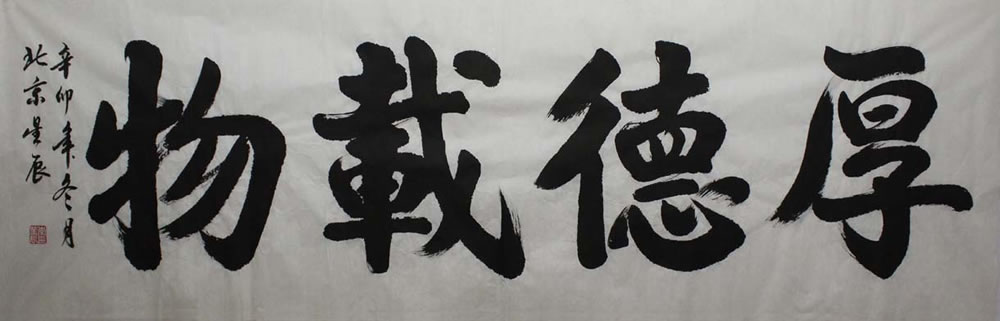 厚德載物
辛卯年冬月
北京星辰